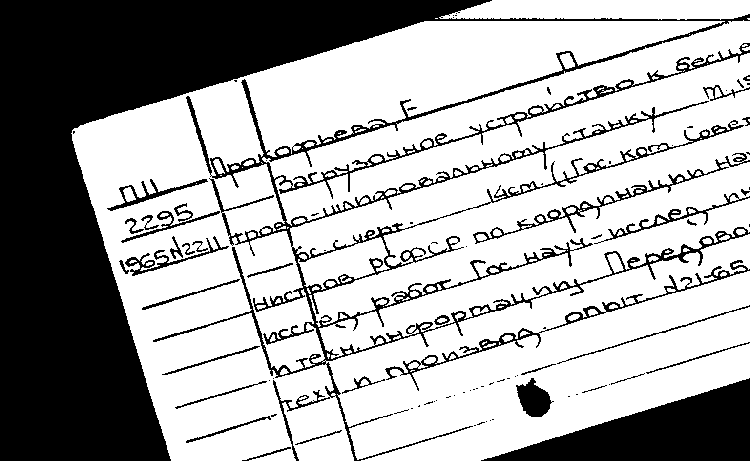 П
Прокофьева, Е
П II Загрузочное устройство к бесце
2295 трово-шлифовальному станку М, 19
1965 N2211 6с. с черт. 14см. (Гос. ком Совет
нистров РСФСР по координации нау
исслед. работ. Гос. науч-исслед. ин
и техн. информации. Передово
техн. и производ. опыт N21-65